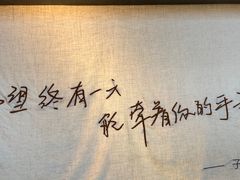 望终有一天
能牵着你的手